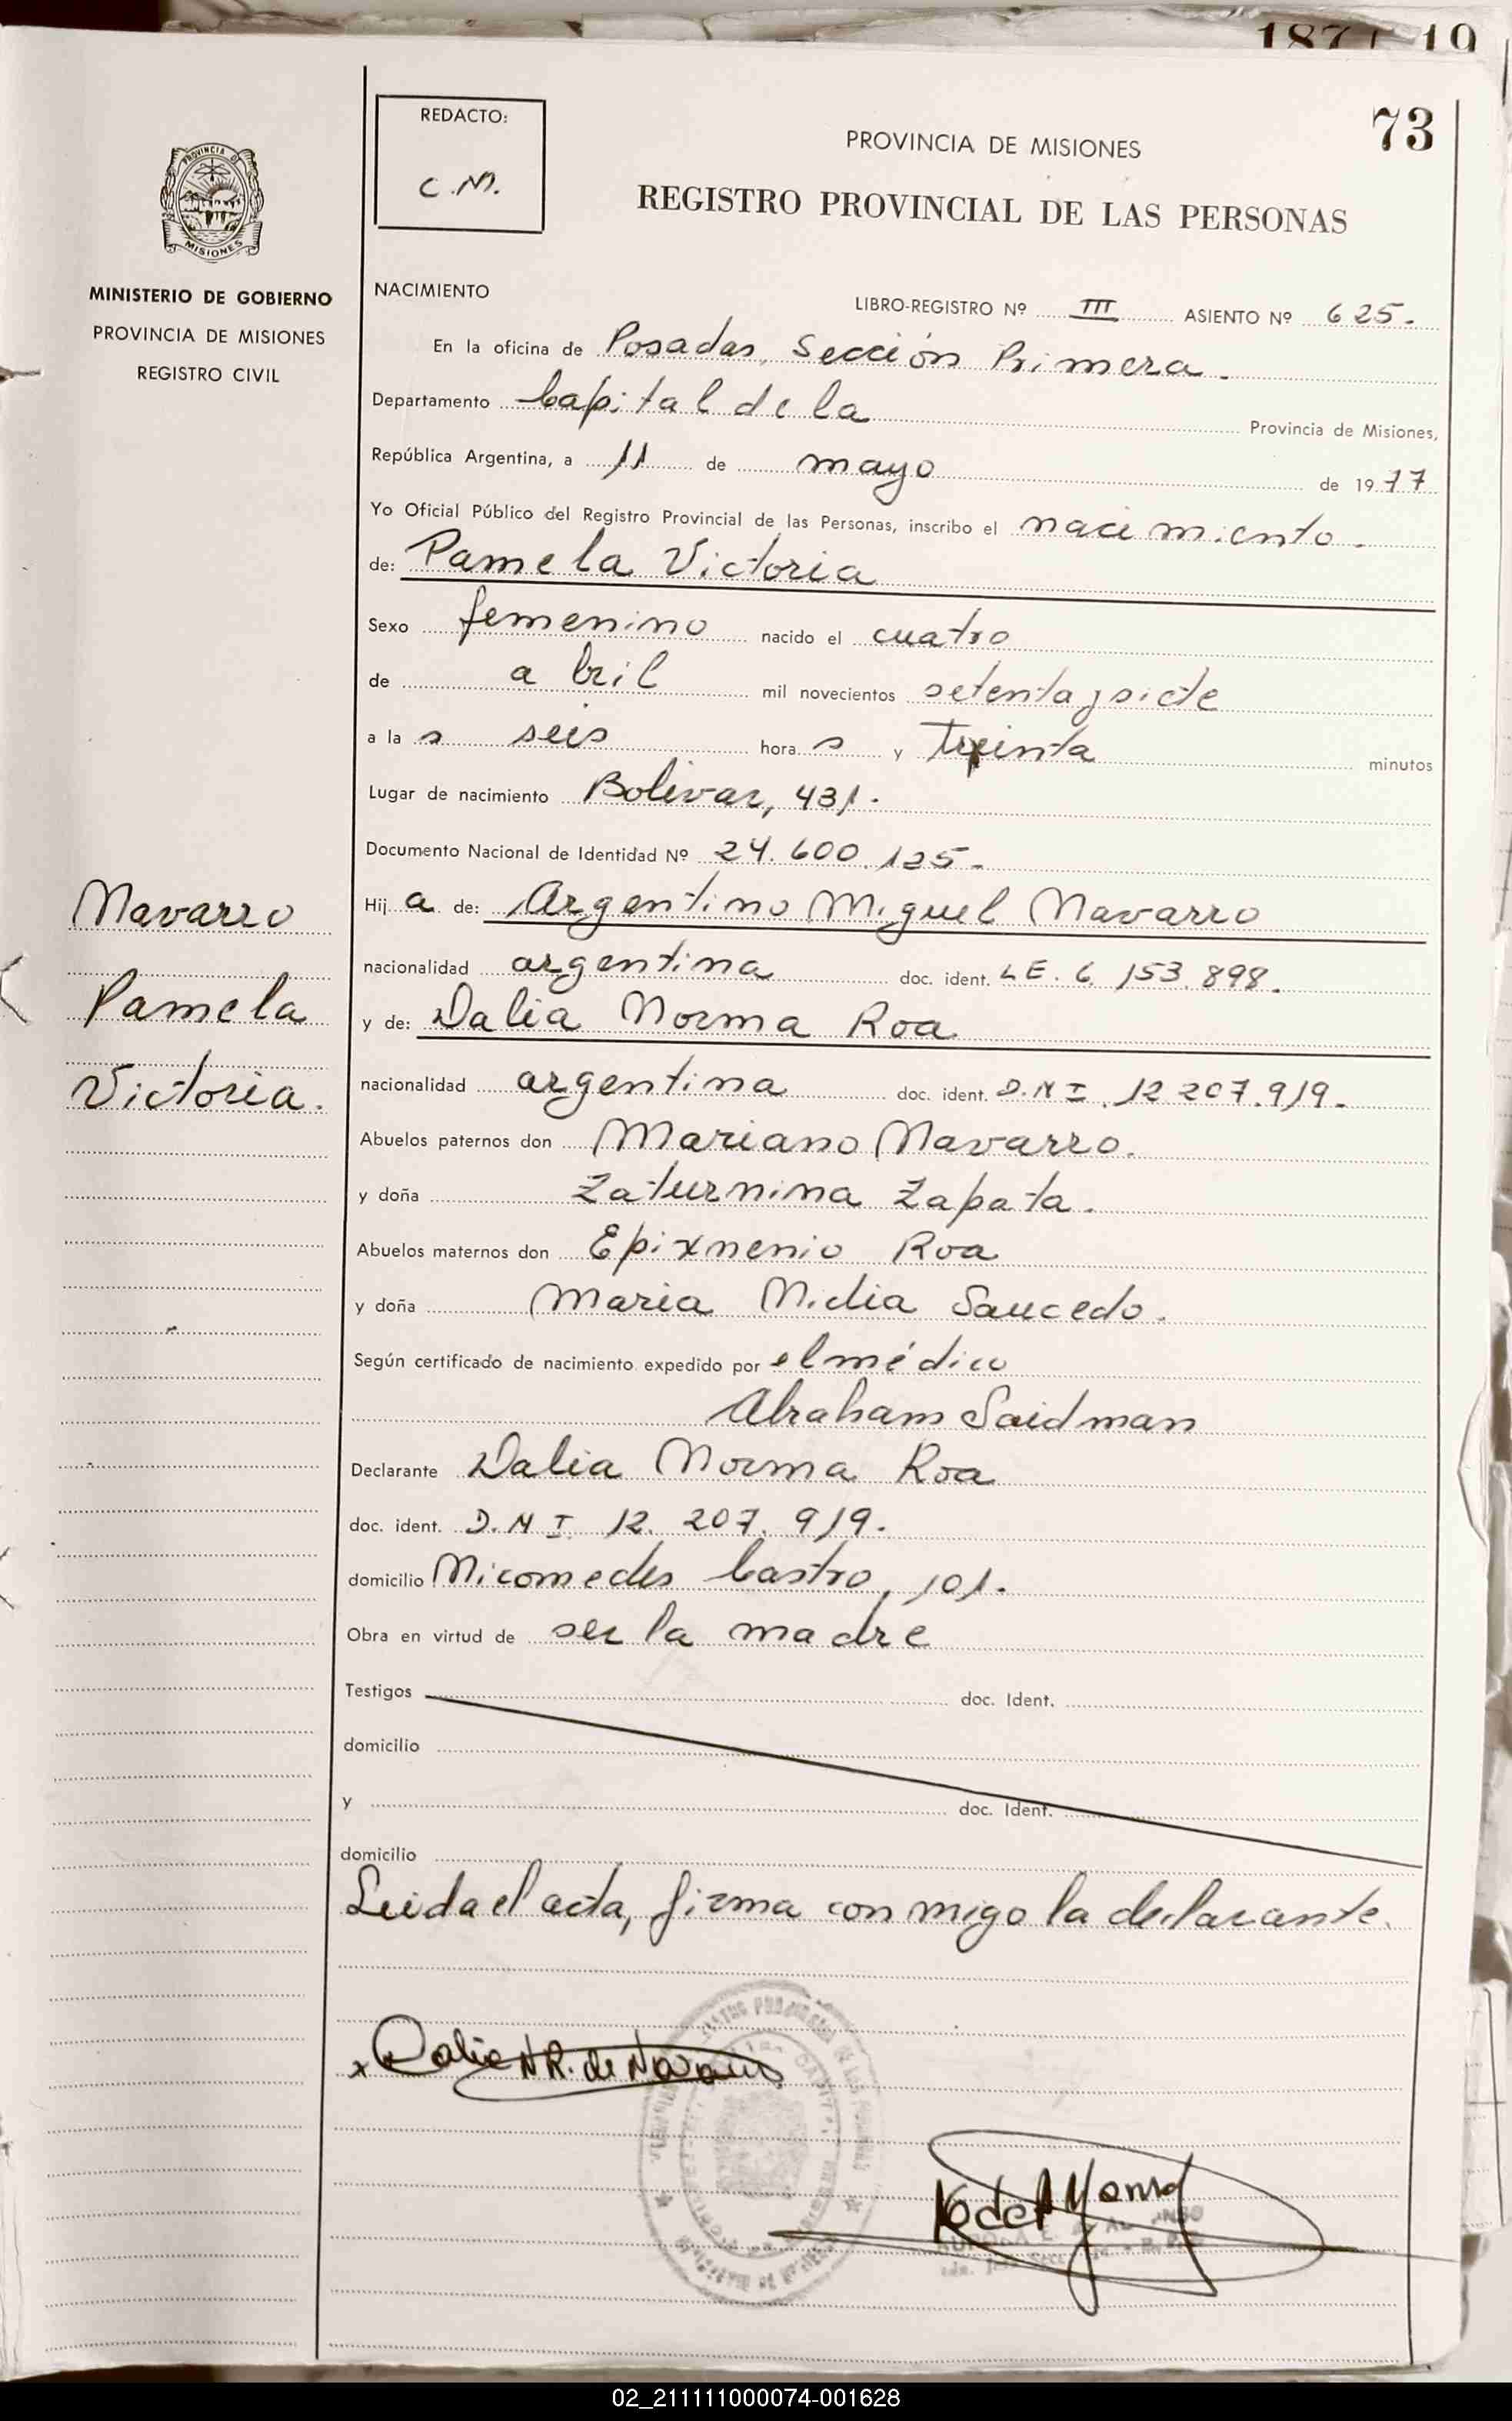 187 19
73
REDACTO:
C.M.
PROVINCIA DE MISIONES
REGISTRO PROVINCIAL DE LAS PERSONAS
PROVINCIA DE
MISIONES
MINISTERIO DE GOBIERNO
PROVINCIA DE MISIONES
REGISTRO CIVIL
NACIMIENTO
LIBRO-REGISTRO Nº III ASIENTO Nº 625.
En la oficina de Posadas, Sección Primera.
Departamento Capital de la Provincia de Misiones,
República Argentina, a 11 de mayo de 1977
Yo Oficial Público del Registro Provincial de las Personas, inscribo el nacimiento.
de: Pamela Victoria
Sexo femenino nacido el cuatro
de abril mil novecientos setenta y siete
a la s seis hora s y treinta minutos
Lugar de nacimiento Bolivar, 431.
Documento Nacional de Identidad Nº 24.600.125.
Navarro
Pamela
Victoria.
Hij a de: Argentino Miguel Navarro
nacionalidad argentina doc. ident. L E. 6.153.898.
y de: Dalia Norma Roa
nacionalidad argentina doc. ident. D.N I. 12 207.919.
Abuelos paternos don Mariano Navarro.
y doña Zaturnina Zapata.
Abuelos maternos don Epixmenio Roa
y doña Maria Nidia Saucedo.
Según certificado de nacimiento expedido por el médico
Abraham Saidman
Declarante Dalia Norma Roa
doc. ident. D.N I. 12. 207. 919.
domicilio Nicomedes Castro, 101.
Obra en virtud de ser la madre
Testigos doc. Ident.
domicilio
y doc. Ident.
domicilio
Leida el acta, firma con migo la declarante.
x Dalia N R. de Navarro
02_211111000074-001628